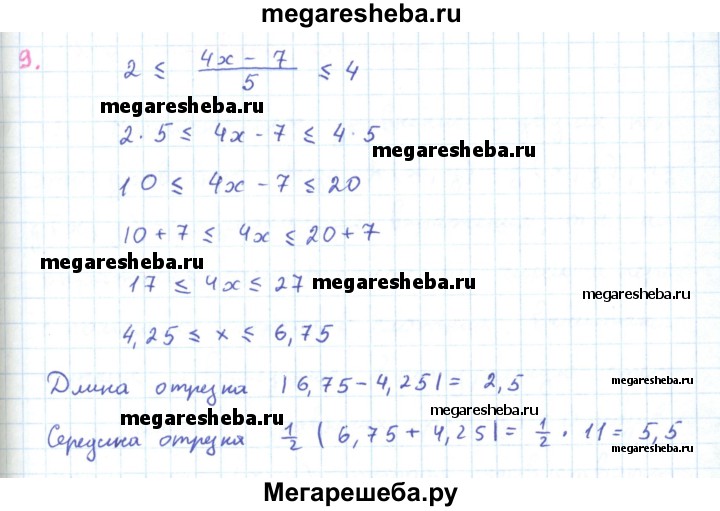 megaresheba.ru
9.
2 ≤ (4x − 7)/5 ≤ 4
megaresheba.ru
2 · 5 ≤ 4x − 7 ≤ 4 · 5
megaresheba.ru
10 ≤ 4x − 7 ≤ 20
10 + 7 ≤ 4x ≤ 20 + 7
megaresheba.ru
17 ≤ 4x ≤ 27
megaresheba.ru
megaresheba.ru
4,25 ≤ x ≤ 6,75
Длина отрезка |6,75 − 4,25| = 2,5
megaresheba.ru
megaresheba.ru
megaresheba.ru
Середина отрезка 1/2 (6,75 + 4,25| = 1/2 · 11 = 5,5
megaresheba.ru
Мегарешеба.ру